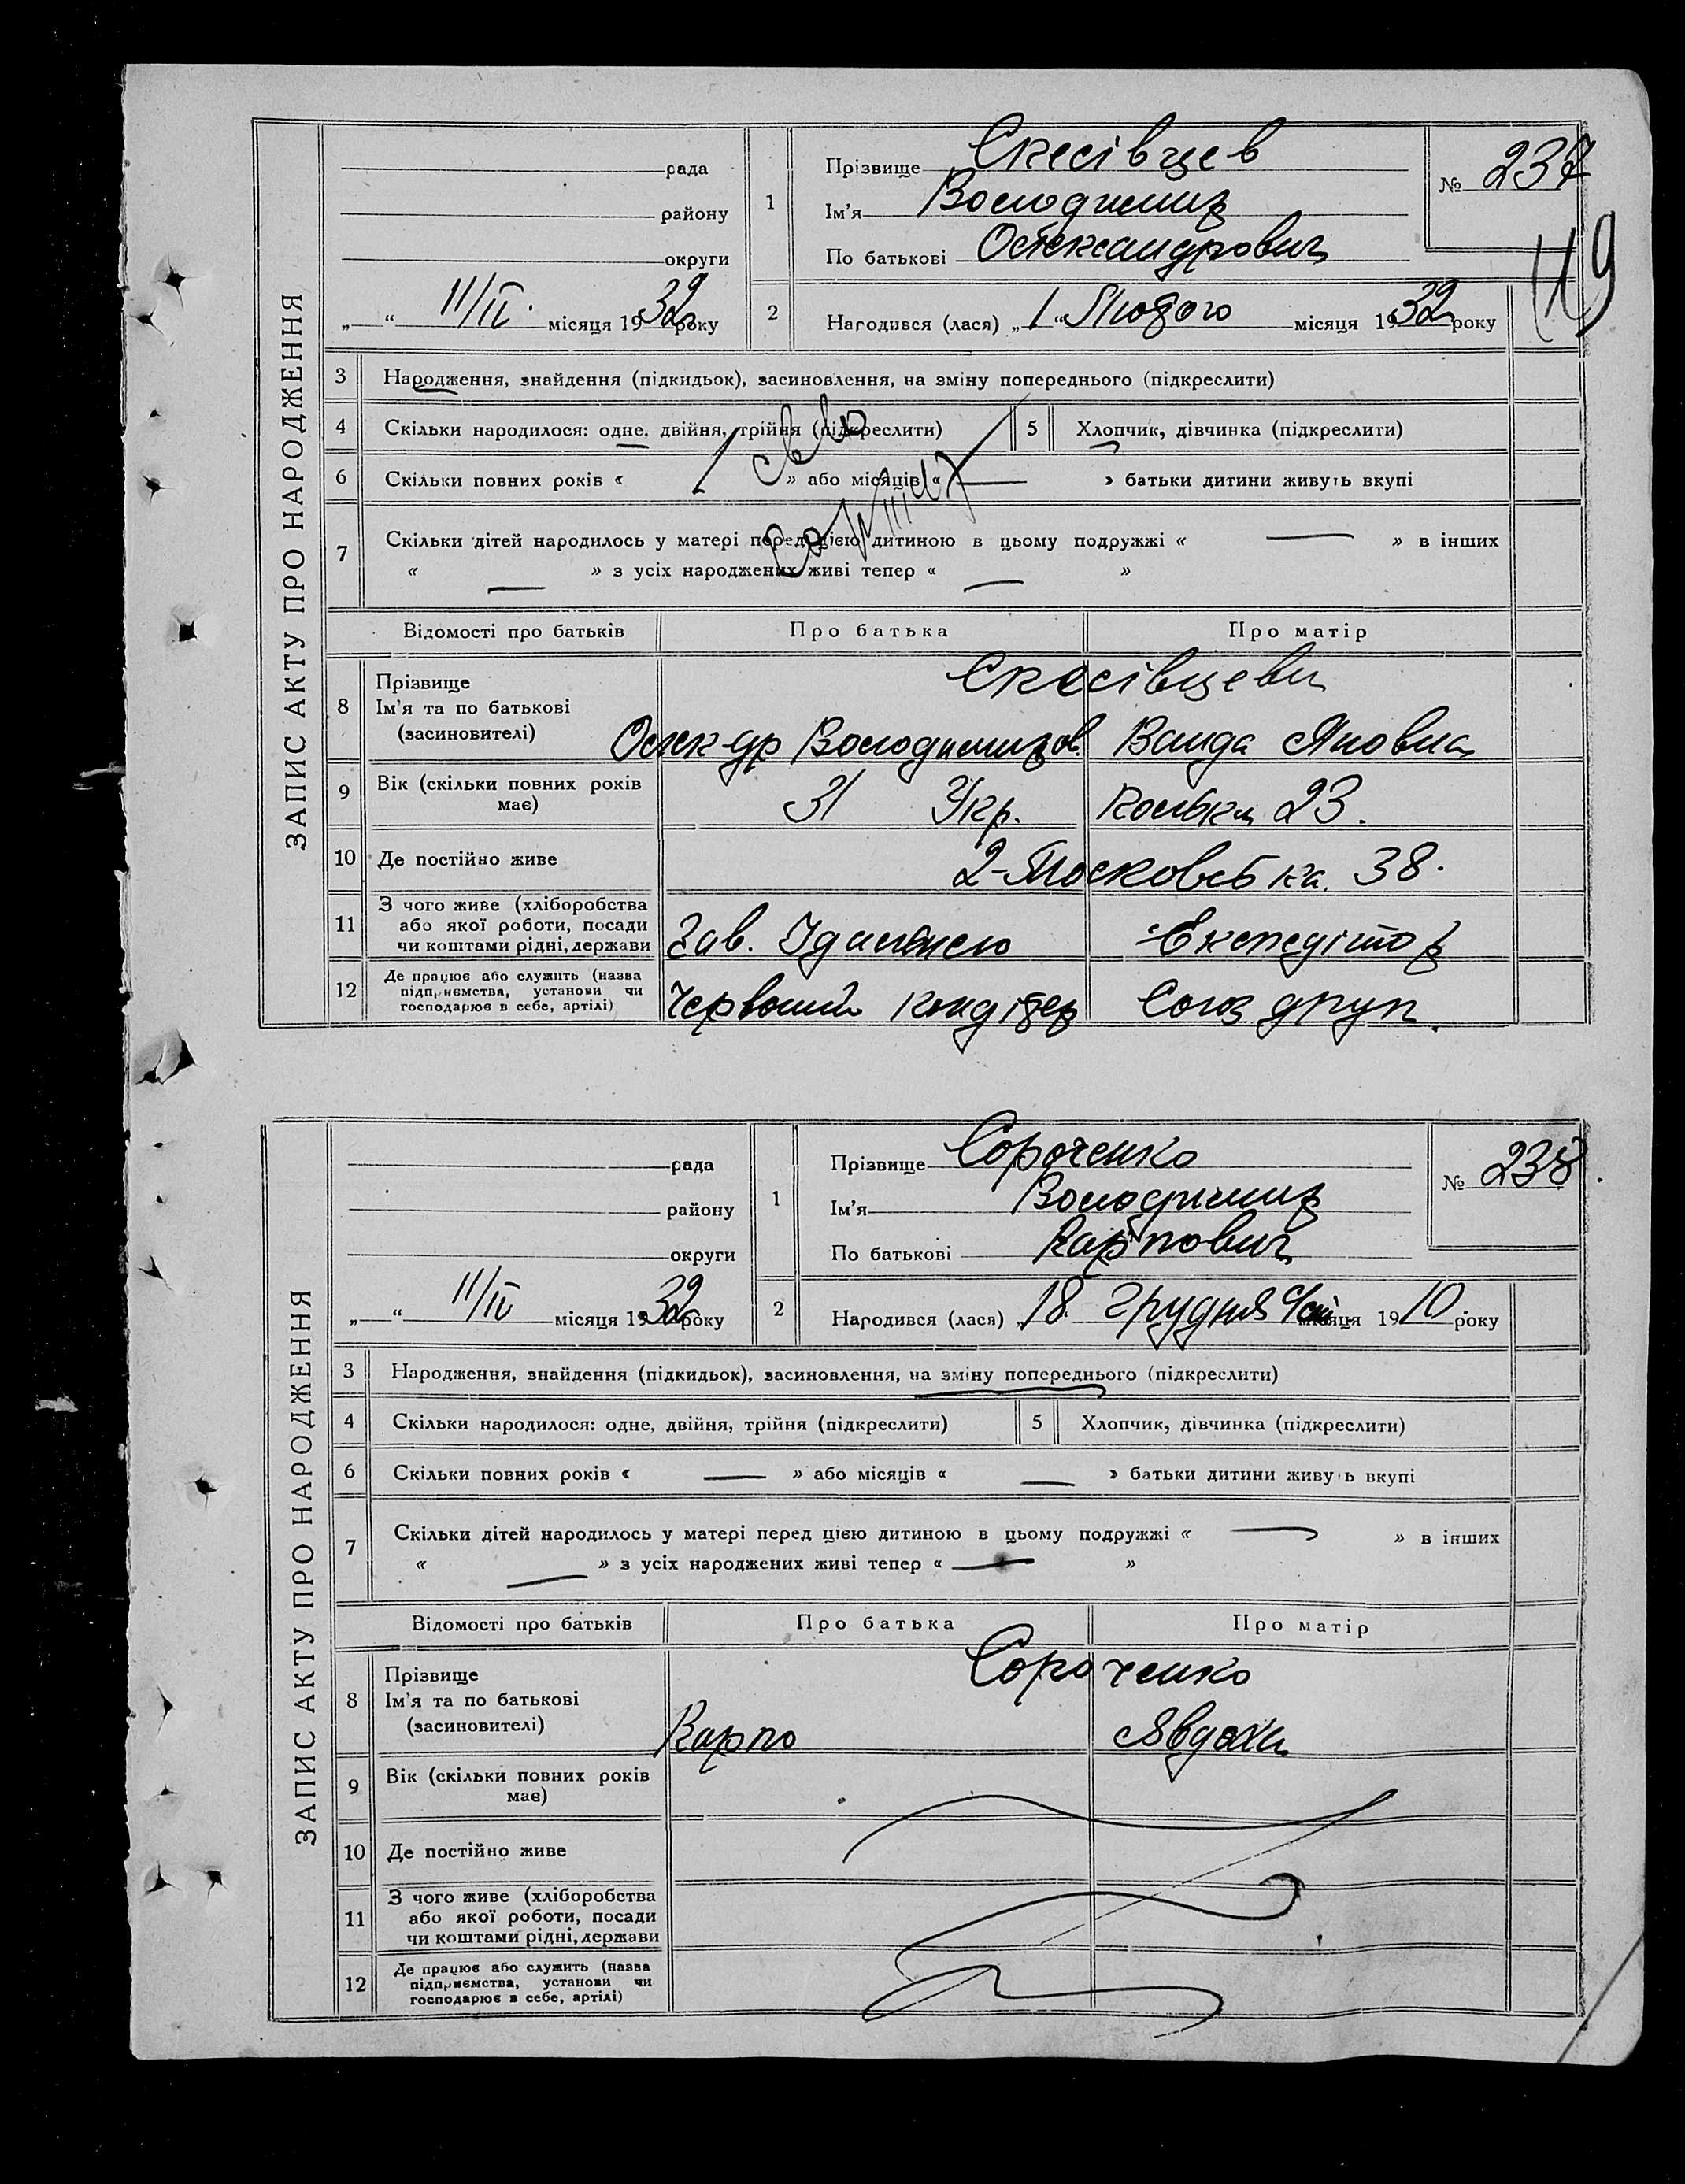 ЗАПИС АКТУ ПРО НАРОДЖЕННЯ
рада
району
округи
„ “ 11/II місяця 1932 року
1 Прізвище Скесівцев
Ім'я Володимир
По батькові Олександрович
№ 237
119
2 Народився (лася) „1“ Лютого місяця 1932 року
3 Народження, знайдення (підкидьок), засиновлення, на зміну попереднього (підкреслити)
4 Скільки народилося: одне, двійня, трійня (підкреслити) 5 Хлопчик, дівчинка (підкреслити)
6 Скільки повних років « 1 » або місяців « — » батьки дитини живуть вкупі
7 Скільки дітей народилось у матері перед цією дитиною в цьому подружжі « — » в інших
« — » з усіх народжених живі тепер « — »
Відомості про батьків Про батька Про матір
8 Прізвище
Ім'я та по батькові
(засиновителі)
Скесівцеви
Олек-др Володимиров. Ванда Яновна
9 Вік (скільки повних років має) 31 Укр. Полька 23.
10 Де постійно живе 2-Московська. 38.
11 З чого живе (хліборобства або якої роботи, посади чи коштами рідні, держави Зав. Їдальнею Експедітор
12 Де працює або служить (назва підприємства, установи чи господарює в себе, артілі) Червоний Кондітер Союз друк.
ЗАПИС АКТУ ПРО НАРОДЖЕННЯ
рада
району
округи
„ “ 11/II місяця 1932 року
1 Прізвище Сороченко
Ім'я Володимир
По батькові Карпович
№ 238.
2 Народився (лася) „18. Грудня місяця 1910 року
3 Народження, знайдення (підкидьок), засиновлення, на зміну попереднього (підкреслити)
4 Скільки народилося: одне, двійня, трійня (підкреслити) 5 Хлопчик, дівчинка (підкреслити)
6 Скільки повних років « — » або місяців « — » батьки дитини живуть вкупі
7 Скільки дітей народилось у матері перед цією дитиною в цьому подружжі « — » в інших
« — » з усіх народжених живі тепер « — »
Відомості про батьків Про батька Про матір
8 Прізвище
Ім'я та по батькові
(засиновителі)
Сороченко
Карпо Явдоха
9 Вік (скільки повних років має)
10 Де постійно живе
11 З чого живе (хліборобства або якої роботи, посади чи коштами рідні, держави
12 Де працює або служить (назва підприємства, установи чи господарює в себе, артілі)